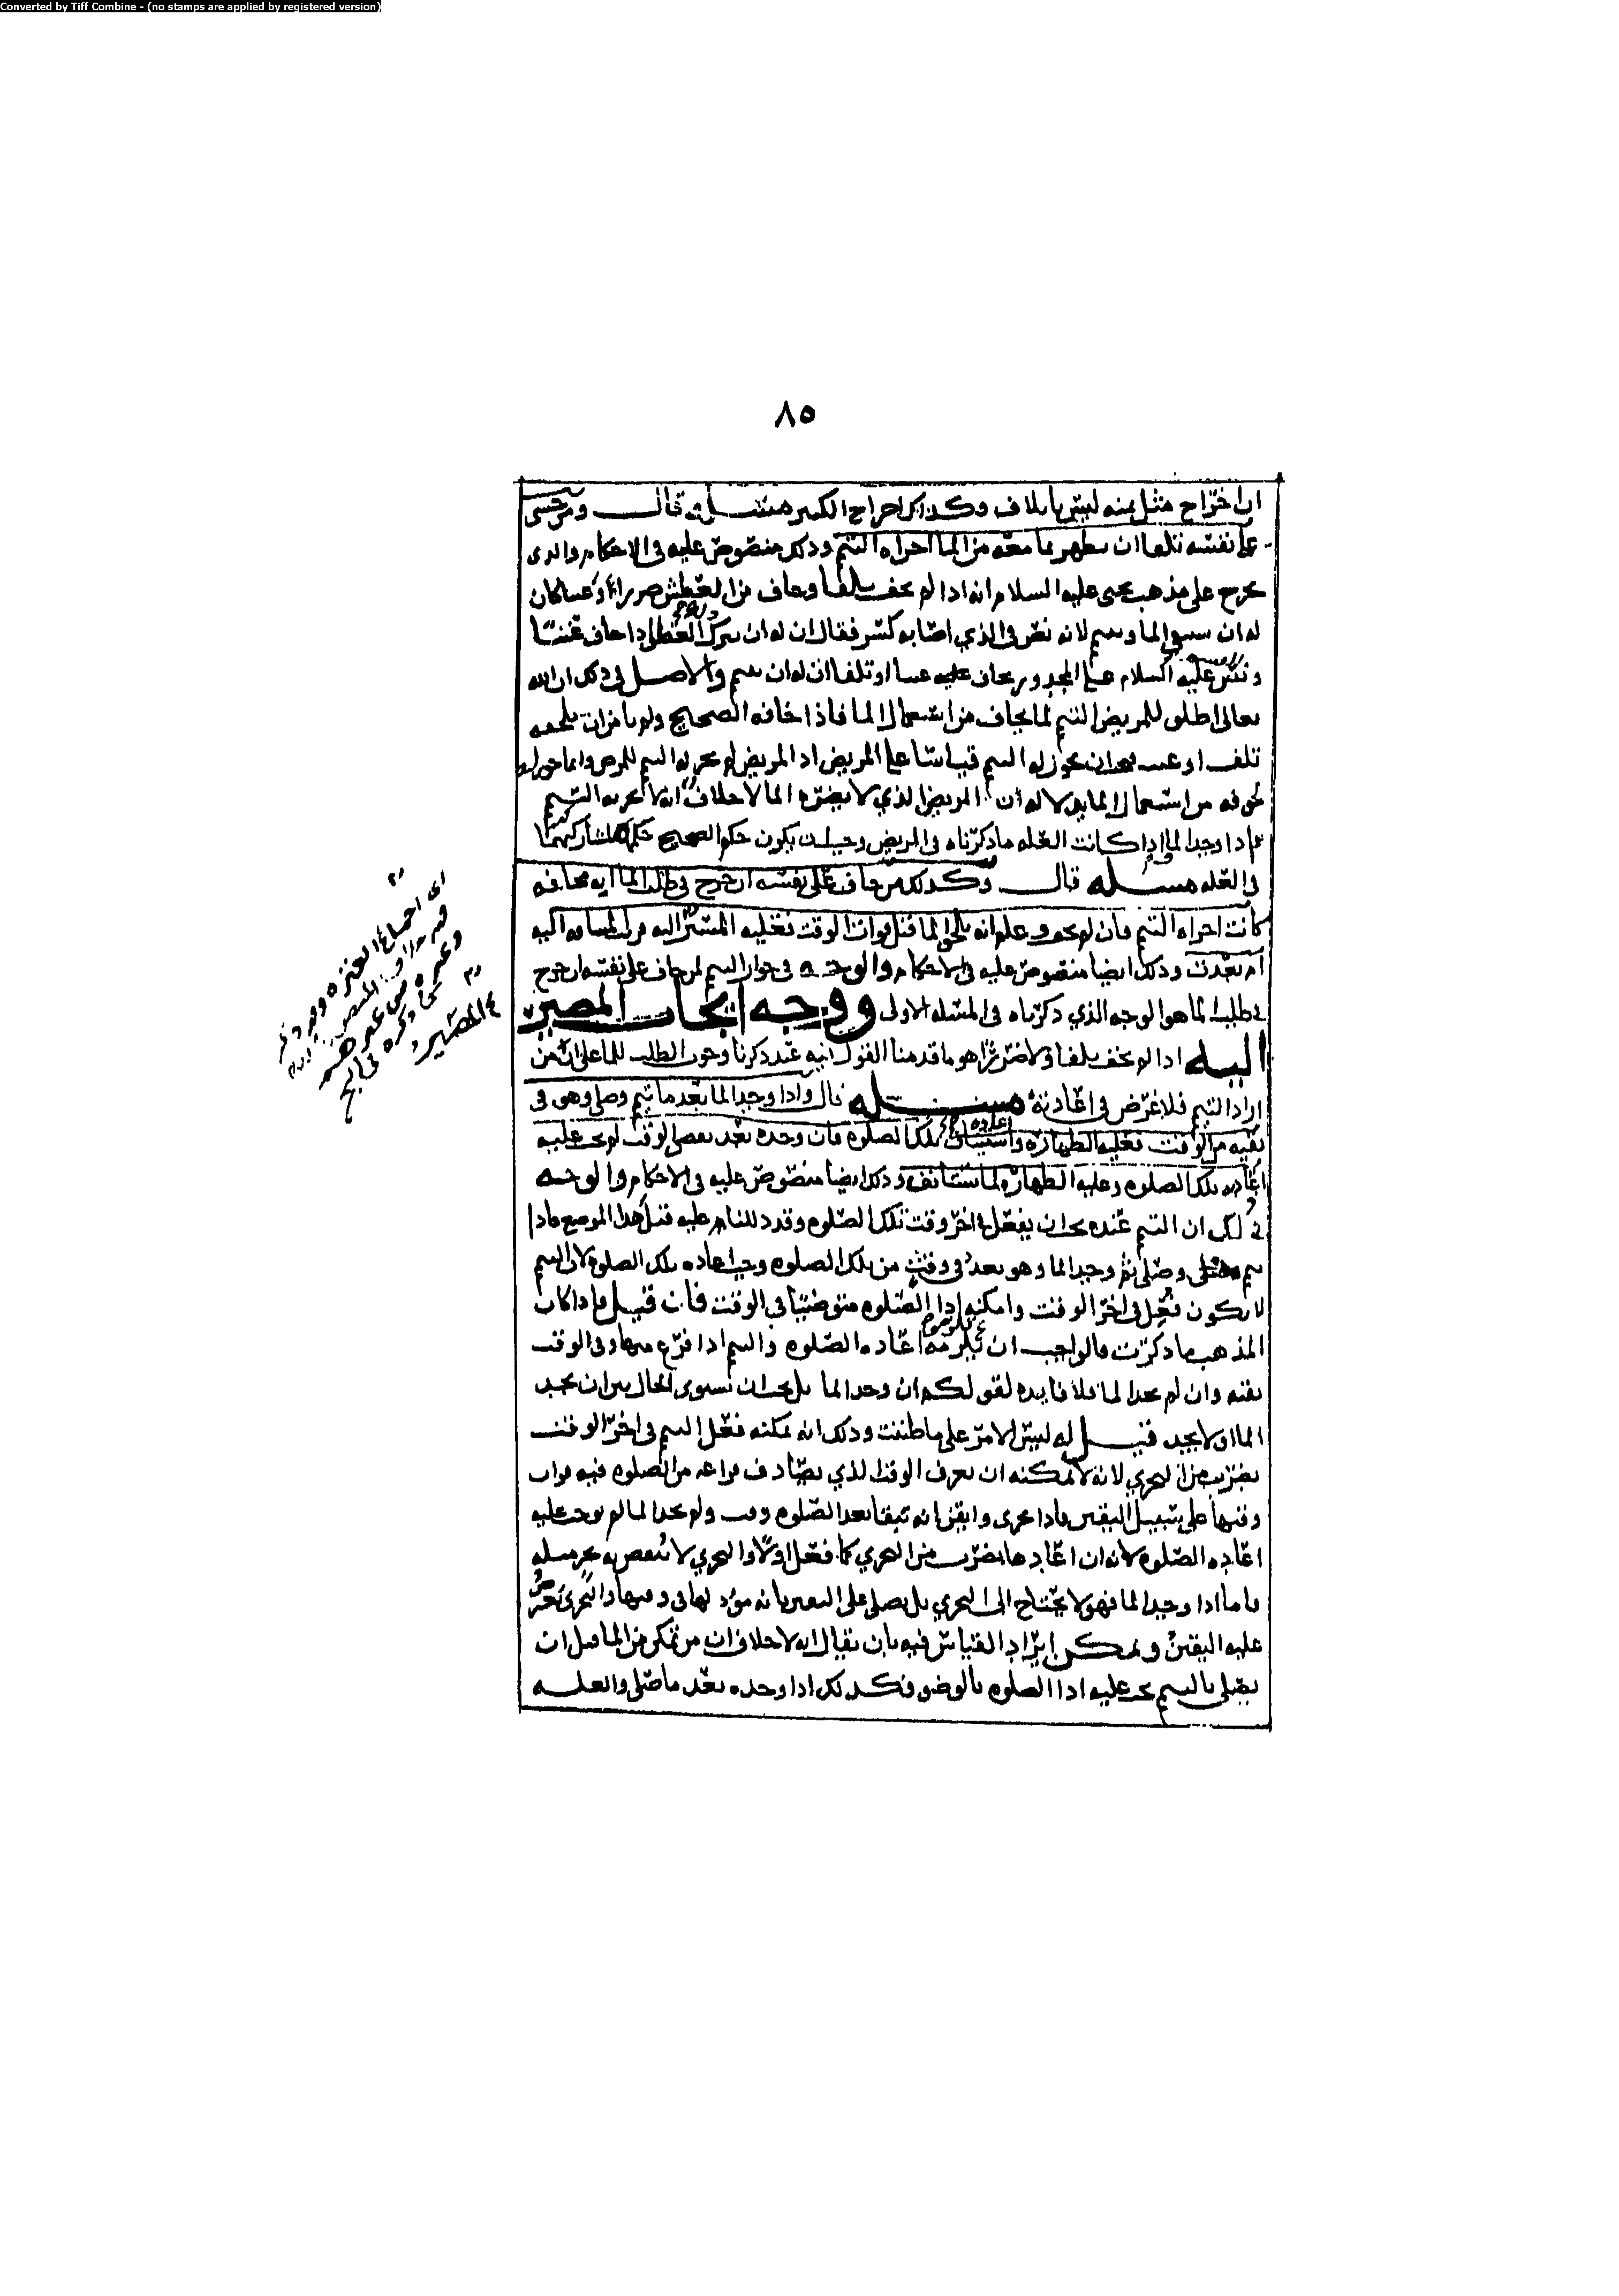 Converted by Tiff Combine - (no stamps are applied by registered version)
٨٥
ان اخراج مثل ثمنه ليس باتلاف وكذلك اخراج الكثير مسئلة قال ومن خشي
على نفسه تلفا ان يطهر بما معه من الما اجزاه التيمم وذلك منصوص عليه في الاحكام والذي
يخرج على مذهب يحيى عليه السلام انه اذا لم يخف تلفا وخاف من العطش ضررا او عنتا كان
له ان يبقي الما ويتيمم لانه نص في الذي اصابه كسر فقال ان له ان يترك اذا خاف عنتا
ونص عليه السلام على المجدور يخاف عليه عنتا او تلفا ان له ان يتيمم والاصل في ذلك ان الله
تعالى اطلق للمريض التيمم لما يخاف من استعمال الما فاذا خافه الصحيح ولم يامن ان يلحقه
تلف او عنت يجوز له التيمم قياسا على المريض اذ المريض لم يجز له التيمم للمرض وانما جوز له
لخوفه من استعمال الما بدلالة ان المريض الذي لا يضره الما لا خلاف انه لا يجزيه التيمم
اذا وجد الما واذا كانت العله ما ذكرناه في المريض وجب ان يكون حكم الصحيح حكمه لمشاركتهما
في العله مسئله قال وكذلك من خاف على نفسه ان خرج في طلب الما اية مخافة
كانت اجزاه التيمم فان لم يخف وعلم انه يلحق الما قبل فوات الوقت فعليه المسير اليه قربت المسافه اليه
ام بعدت وذلك ايضا منصوص عليه في الاحكام والوجه في جواز التيمم لمن خاف على نفسه ان خرج
في طلب الما هو الوجه الذي ذكرناه في المسئله الاولى ووجه ايجاب المصير
اليه اذا لم يخف تلفا ولا ضررا هو ما قدمنا القول فيه عند ذكرنا وجوب الطلب للما على ان من
اراد التيمم فلا غرض في اعادته مسئله قال واذا وجد الما بعد ما تيمم وصلى وهو في
بقيه من الوقت فعليه الطهارة واستيناف تلك الصلوه فان وجده بعد تقضي الوقت لم يجب عليه
اعادة تلك الصلوه وعليه الطهارة لما يستانف وذلك ايضا منصوص عليه في الاحكام والوجه
في ذلك ان التيمم عنده يجب ان يفعل في اخر وقت تلك الصلوه وقد دللنا عليه قبل هذا الموضع فاذا
تيمم وصلى ثم وجد الما وهو بعد في وقت من تلك الصلوه وجب اعاده تلك الصلوه لان التيمم
لا يكون فعل في اخر الوقت وامكنه ادا الصلوه متوضئا في الوقت فان قيل فاذا كان
المذهب ما ذكرت فالواجب ان يلزمه اعاده الصلوه والتيمم اذا فرغ منها وفي الوقت
بقيه وان لم يجد الما فلا فايده لقولكم ان وجد الما بل يجب ان تستوي الحال بين ان يجد
الما او لا يجد قيل له ليس الامر على ما ظننت وذلك انه يمكنه فعل التيمم في اخر الوقت
بضرب من التحري لانه لا يمكنه ان يعرف الوقت الذي يصادف فراغه من الصلوه فيه فوات
وقتها على سبيل اليقين فاذا تحرى وايقن انه تبقا بعد الصلوه وقت ولم يجد الما لم يوجب عليه
اعاده الصلوه لانه ان اعادها بضرب من التحري كما فعل اولا والتحري لا ينقض به تحر مثله
فاما اذا وجد الما فهو لا يحتاج الى التحري بل يصلي على اليقين بانه مؤد لها في وقتها والتحري
عليه اليقين ويمكن ايراد القياس فيه بان يقال انه لا خلاف ان من تمكن من الما قبل ان
يصلي بالتيمم يجب عليه ادا الصلوه بالوضو فكذلك اذا وجده بعد ما صلى والعلـه